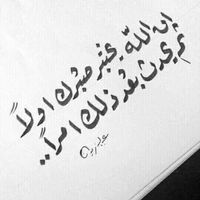 إن اللّٰه يختبر صبرك اولاً
ثم يحدث بعد ذلك امراً.